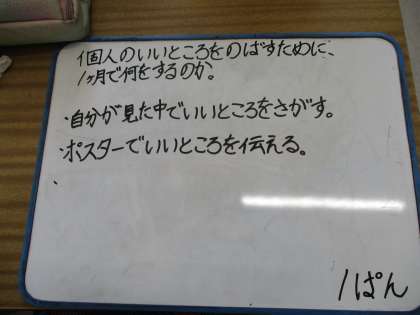 1個人のいいところをのばすために、
1ヶ月で何をするのか。
・自分が見た中でいいところをさがす。
・ポスターでいいところを伝える。
・
1ぱん